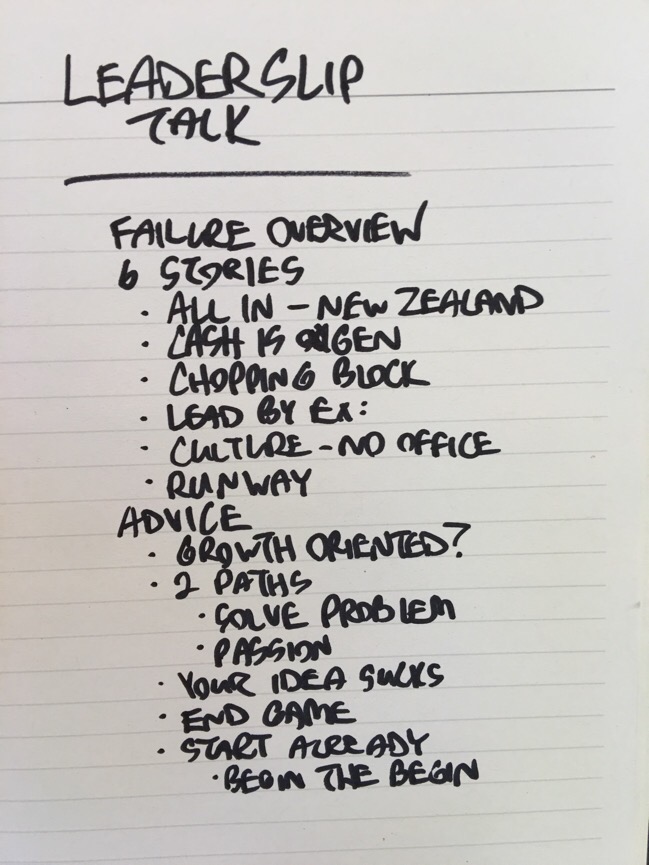 LEADERSLIP
TALK
FAILURE OVERVIEW
6 STORIES
· ALL IN - NEW ZEALAND
· CASH IS
· CHOPPING BLOCK
· LEAD BY EX:
· CULTURE - NO OFFICE
· RUNWAY
ADVICE
· GROWTH ORIENTED?
· 2 PATHS
· SOLVE PROBLEM
· PASSION
· YOUR IDEA SUCKS
· END GAME
· START ALREADY
· BEGIN THE BEGIN